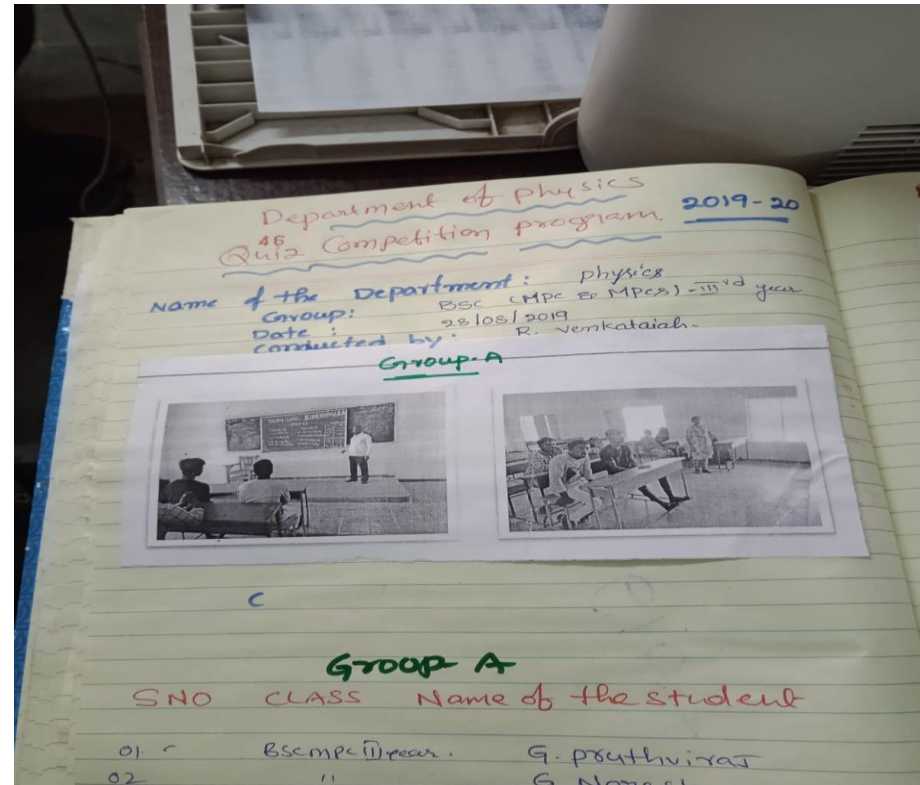 Department of physics
2019-20
46
Quiz Competition program
Name of the Department: physics
Group: BSC (MPC & MPCS)-IIIrd year
Date: 28/08/2019
Conducted by: R. Venkataiah.
Group-A
C
Group A
SNO CLASS Name of the student
01. BScmpc year. G. pruthviraj
02 " G